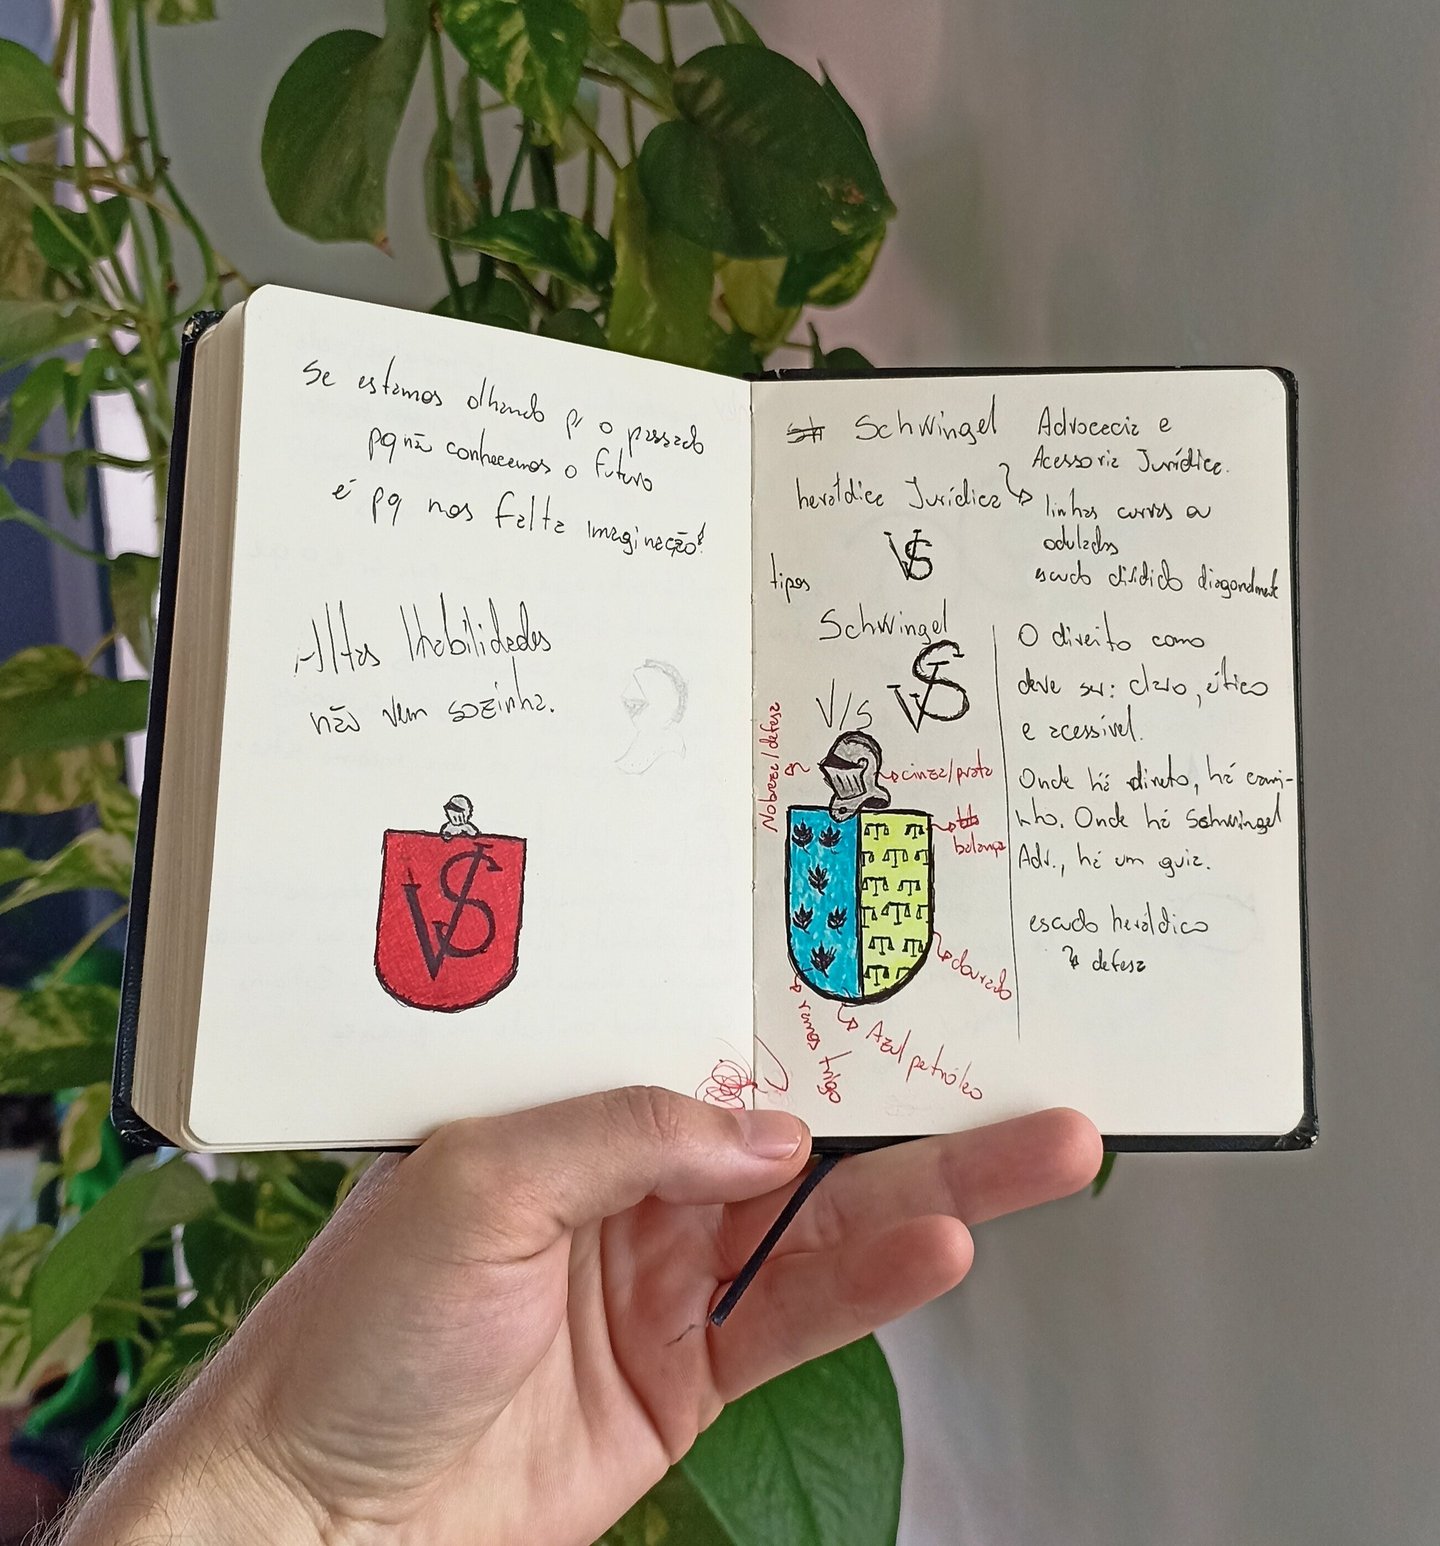 Se estamos olhando p/ o passado
pq não conhecemos o futuro
é pq nos falta imaginação!
Altas Habilidades
não vem sozinha.
VS
Schwingel
Advocacia e
Acessoria Jurídica.
heráldica Jurídica
linhas curvas ou
odulados
escudo dividido diagonalmente
VS
tipos
Schwingel
VS
V/S
Nobreza/defesa
cinza/prata
balança
dourado
Azul petróleo
ramos trigo
O direito como
deve ser: claro, ético
e acessível.
Onde há direto, há cami-
nho. Onde há Schwingel
Adv., há um guia.
escudo heráldico
defesa